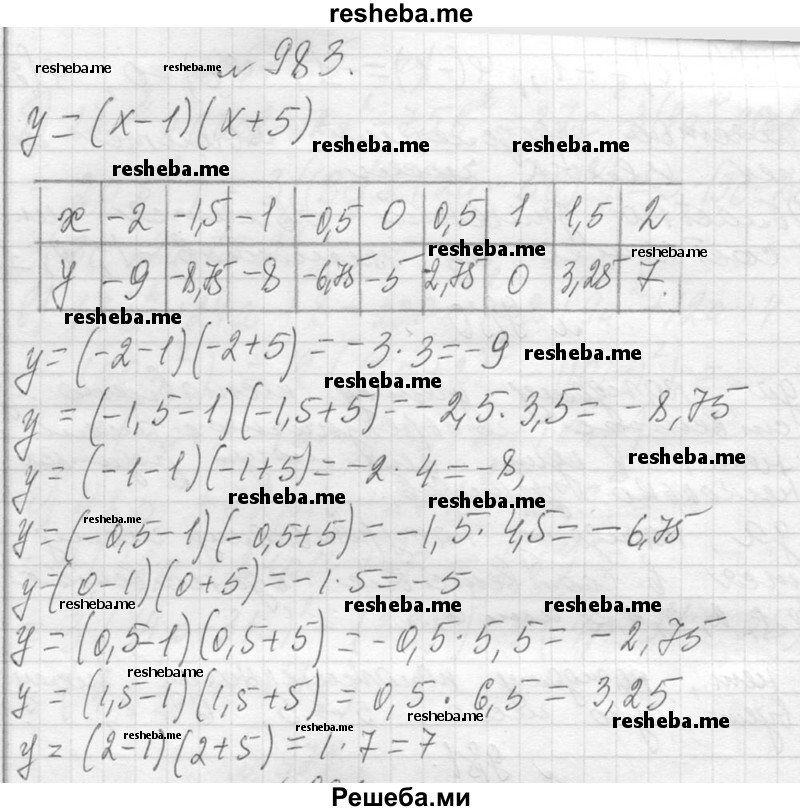 resheba.me
resheba.me resheba.me № 983.
y = (x-1)(x+5)
resheba.me resheba.me
resheba.me
x -2 -1,5 -1 -0,5 0 0,5 1 1,5 2
resheba.me resheba.me
y -9 -8,75 -8 -6,75 -5 2,75 0 3,25 7.
resheba.me
y = (-2-1)(-2+5) = -3·3 = -9 resheba.me
resheba.me
y = (-1,5-1)(-1,5+5) = -2,5·3,5 = -8,75
resheba.me
y = (-1-1)(-1+5) = -2·4 = -8,
resheba.me resheba.me
resheba.me
y = (-0,5-1)(-0,5+5) = -1,5·4,5 = -6,75
y = (0-1)(0+5) = -1·5 = -5
resheba.me resheba.me resheba.me
y = (0,5-1)(0,5+5) = -0,5·5,5 = -2,75
resheba.me
y = (1,5-1)(1,5+5) = 0,5·6,5 = 3,25
resheba.me resheba.me
resheba.me resheba.me
y = (2-1)(2+5) = 1·7 = 7
Решеба.ми